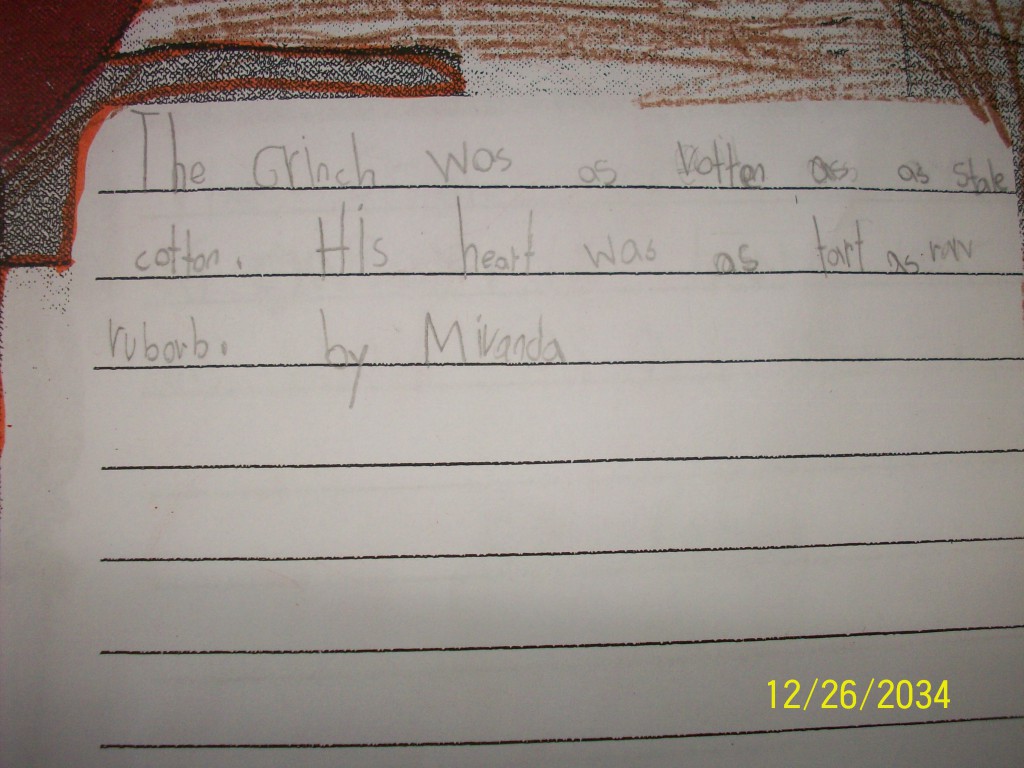 The Grinch was as rotten as as stale
cotton. His heart was as tart as raw
ruborb. by Miranda
12/26/2034